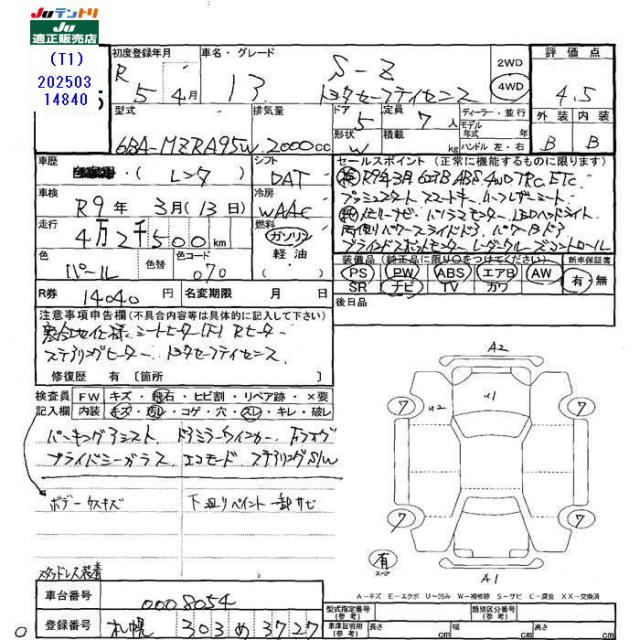 Juテントリ
Ju
適正販売店
(T1)
202503
14840
初度登録年月
R 5年 4月
車名・グレード
13 S-Z
トヨタセーフティセンス
2WD
4WD
評価点
4.5
外装 内装
B B
型式
6BA-MZRA95W
排気量
2000cc
ドア 5
形状 W
定員 7人
積載 kg
ディーラー・並行
モデル年式 年式
ハンドル 左・右
車歴
レンタ
シフト
DAT
車検
R9年 3月(13日)
冷房
WAAC
走行
4万2千500km
燃料
ガソリン
軽油
色
パール
色替
色コード
070
R券 14040円
名変期限 月 日
セールスポイント (正常に機能するものに限ります)
R9年3月 ABS 4WD TRC ETC
プッシュスタート スマートキー ハーフレザーシート
メモリーナビ パノラマモニター LEDヘッドライト
両側パワースライドドア パワーBドア
ブラインドスポットモニター レーダークルーズコントロール
装備品 (純正品に限り○をつけてください)
PS PW ABS エアB AW
SR ナビ TV カワ
新車保証書
有・無
後日品
注意事項申告欄(不具合内容等は具体的に記入して下さい)
寒冷地仕様 シートヒーター(F) Rヒーター
ステアリングヒーター トヨタセーフティセンス
修復歴 有 〔箇所 〕
検査員記入欄
FW キズ・飛石・ヒビ割・リペア跡・×要
内装 キズ・汚レ・コゲ・穴・スレ・キレ・破レ
パーキングアシスト ドアミラーウインカー 万フォグ
プライバシーガラス エコモード ステアリングS/W
ボデーウスキズ
下廻りペイント一部サビ
スタッドレス装着
A2
U1
U2
7
7
7
7
有
A1
A-キズ E-エクボ U-凹み W-補修跡 S-サビ C-腐食 XX-交換済
車台番号 0008054
登録番号 札幌 303 め 3727
型式指定番号(参考)
類別区分番号(参考)
車庫証明用(参考) 長さ cm 幅 cm 高さ cm